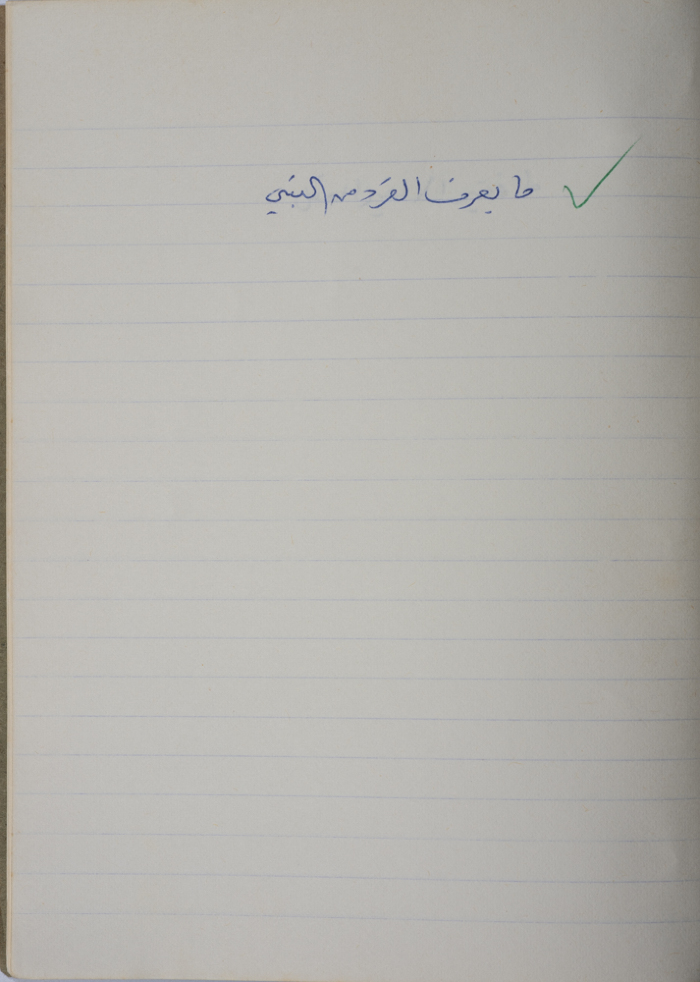 ما يعرف القرد من البني